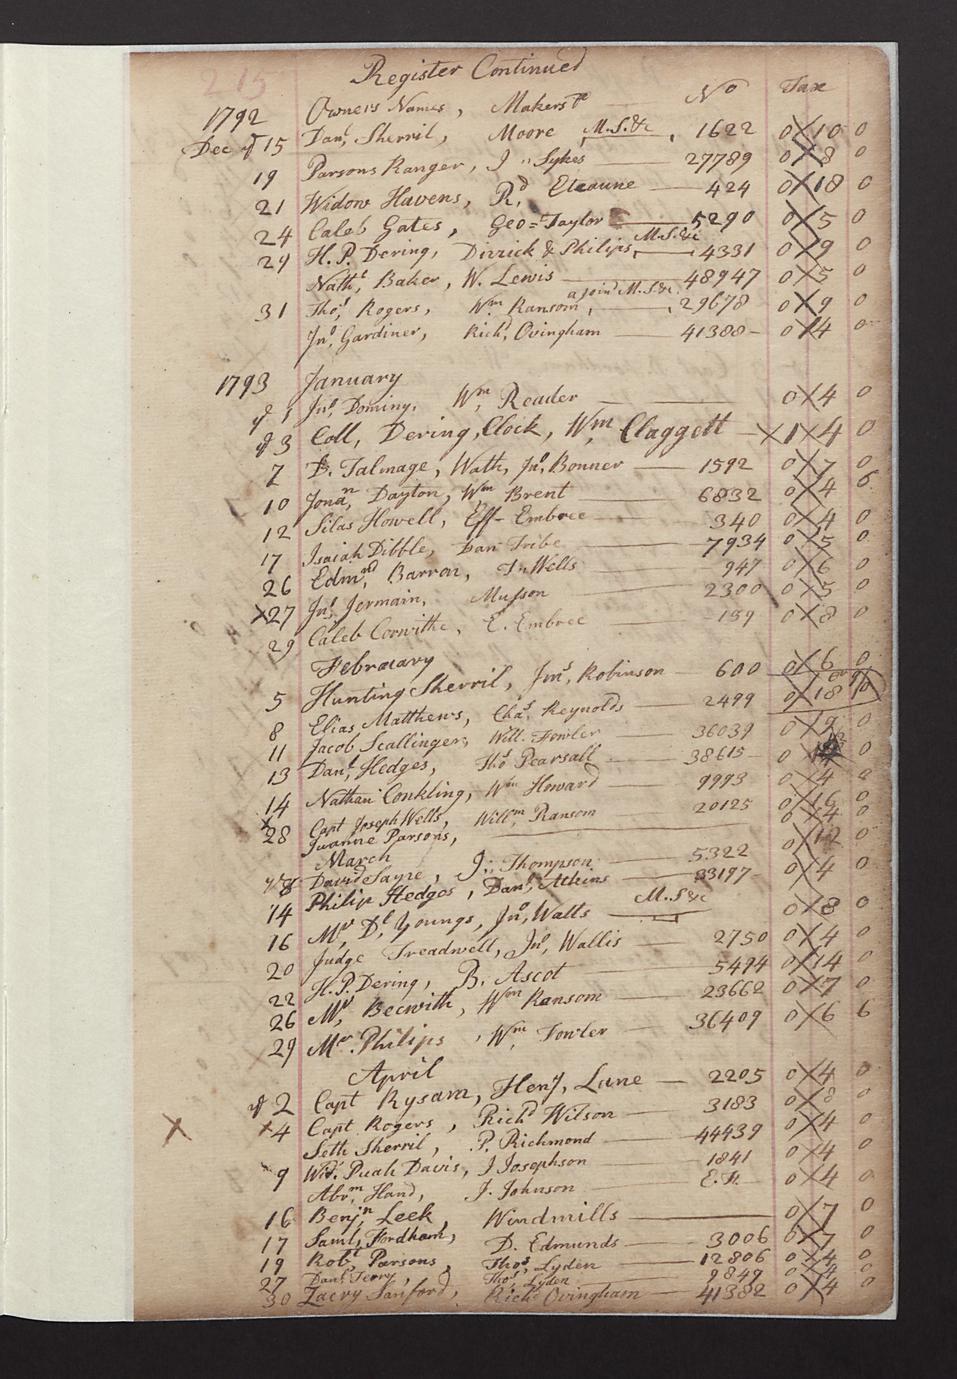 215
Register Continued
1792 Owners Names, Makers &c No Tax
Dec 15 Danl, Sherril, Moore, M.S.&c, 1622 0/10 0
19 Parsons Ranger, J.. Sykes 27789 0/8 0
21 Widow Havens, Rd, Eteaune 424 0/18 0
24 Caleb Gates, Geo=Taylor 5290 0/5 0
29 H.P. Dering, Dirrick & Philips, M.S.&c 4331 0/9 0
Nathl, Baker, W. Lewis 48947 0/5 0
31 Thos, Rogers, Wm Ransom, a joint M.S.&c. 29678 0/9 0
Jno, Gardiner, Richd, Ovingham 41388 - 0/4 0
1793 January
1 Jno, Dominy, Wm, Reader 0/4 0
3 Coll, Dering, Clock, Wm Claggett X 1/4 0
7 D. Talmage, Wath, Jno, Bonner 1592 0/7 0
10 Jonan, Dayton, Wm Brent 6832 0/4 6
12 Silas Howell, Eff- Embree 340 0/4 0
17 Isaiah Dibble, Dan Tribe 7934 0/5 0
26 Edmnd, Barron, Jn Wells 947 0/6 0
X27 Jno, Jermain, Musson 2300 0/5 0
29 Caleb Corwithe, E. Embree 159 0/8 0
February
5 Hunting Sherril, Jno, Robinson 600 0/6 0
8 Elias Matthews, Chas. Reynolds 2499 0/18
11 Jacob Scallinger, Will. Fowler 36039 0/9 0
13 Danl, Hedges, Thos Pearsall 38615 - 0 0
14 Nathan Conkling, Wm Howard 9993 0/4
Capt Joseph Wells, Willm, Ransom 20125 0/16 0
X28 Juanne Parsons, 0/4
March
8 David Sayre, J.. Thompson 5322 0/12 0
14 Philip Hedges, Danl, Atkins 33197 - 0/4 0
16 Mr, Dl, Youngs, Jno, Watts M.S &c 0/8 0
20 Judge Treadwell, Jno, Wallis 2750 0/4 0
22 H.P. Dering, B. Ascot 5494 0/14 0
26 Mr, Becwith, Wm Ransom 23662 0/7 0
29 Mr. Philips, Wm, Fowler 36409 0/6 6
April
2 Capt Rysam, Heny, Lane 2205 0/4 0
X X4 Capt Rogers, Richd Wilson 3183 0/8 0
Seth Sherril, P. Richmond 44439 0/4 0
9 Wid. Puah Davis, J Josephson 1841 0/4 0
Abrm, Hand, J. Johnson 0/4 0
16 Benjn, Leek, Windmills 0/7 0
17 Saml, Fordham, D. Edmunds 3006 0/7 0
19 Robt, Parsons, Thos, Lyden 12806 0/4 0
27 Danl Terry, Thos, Lyden 9849 0/4 0
30 Zacry Sanford, Richd Ovingham 41382 0/4 0